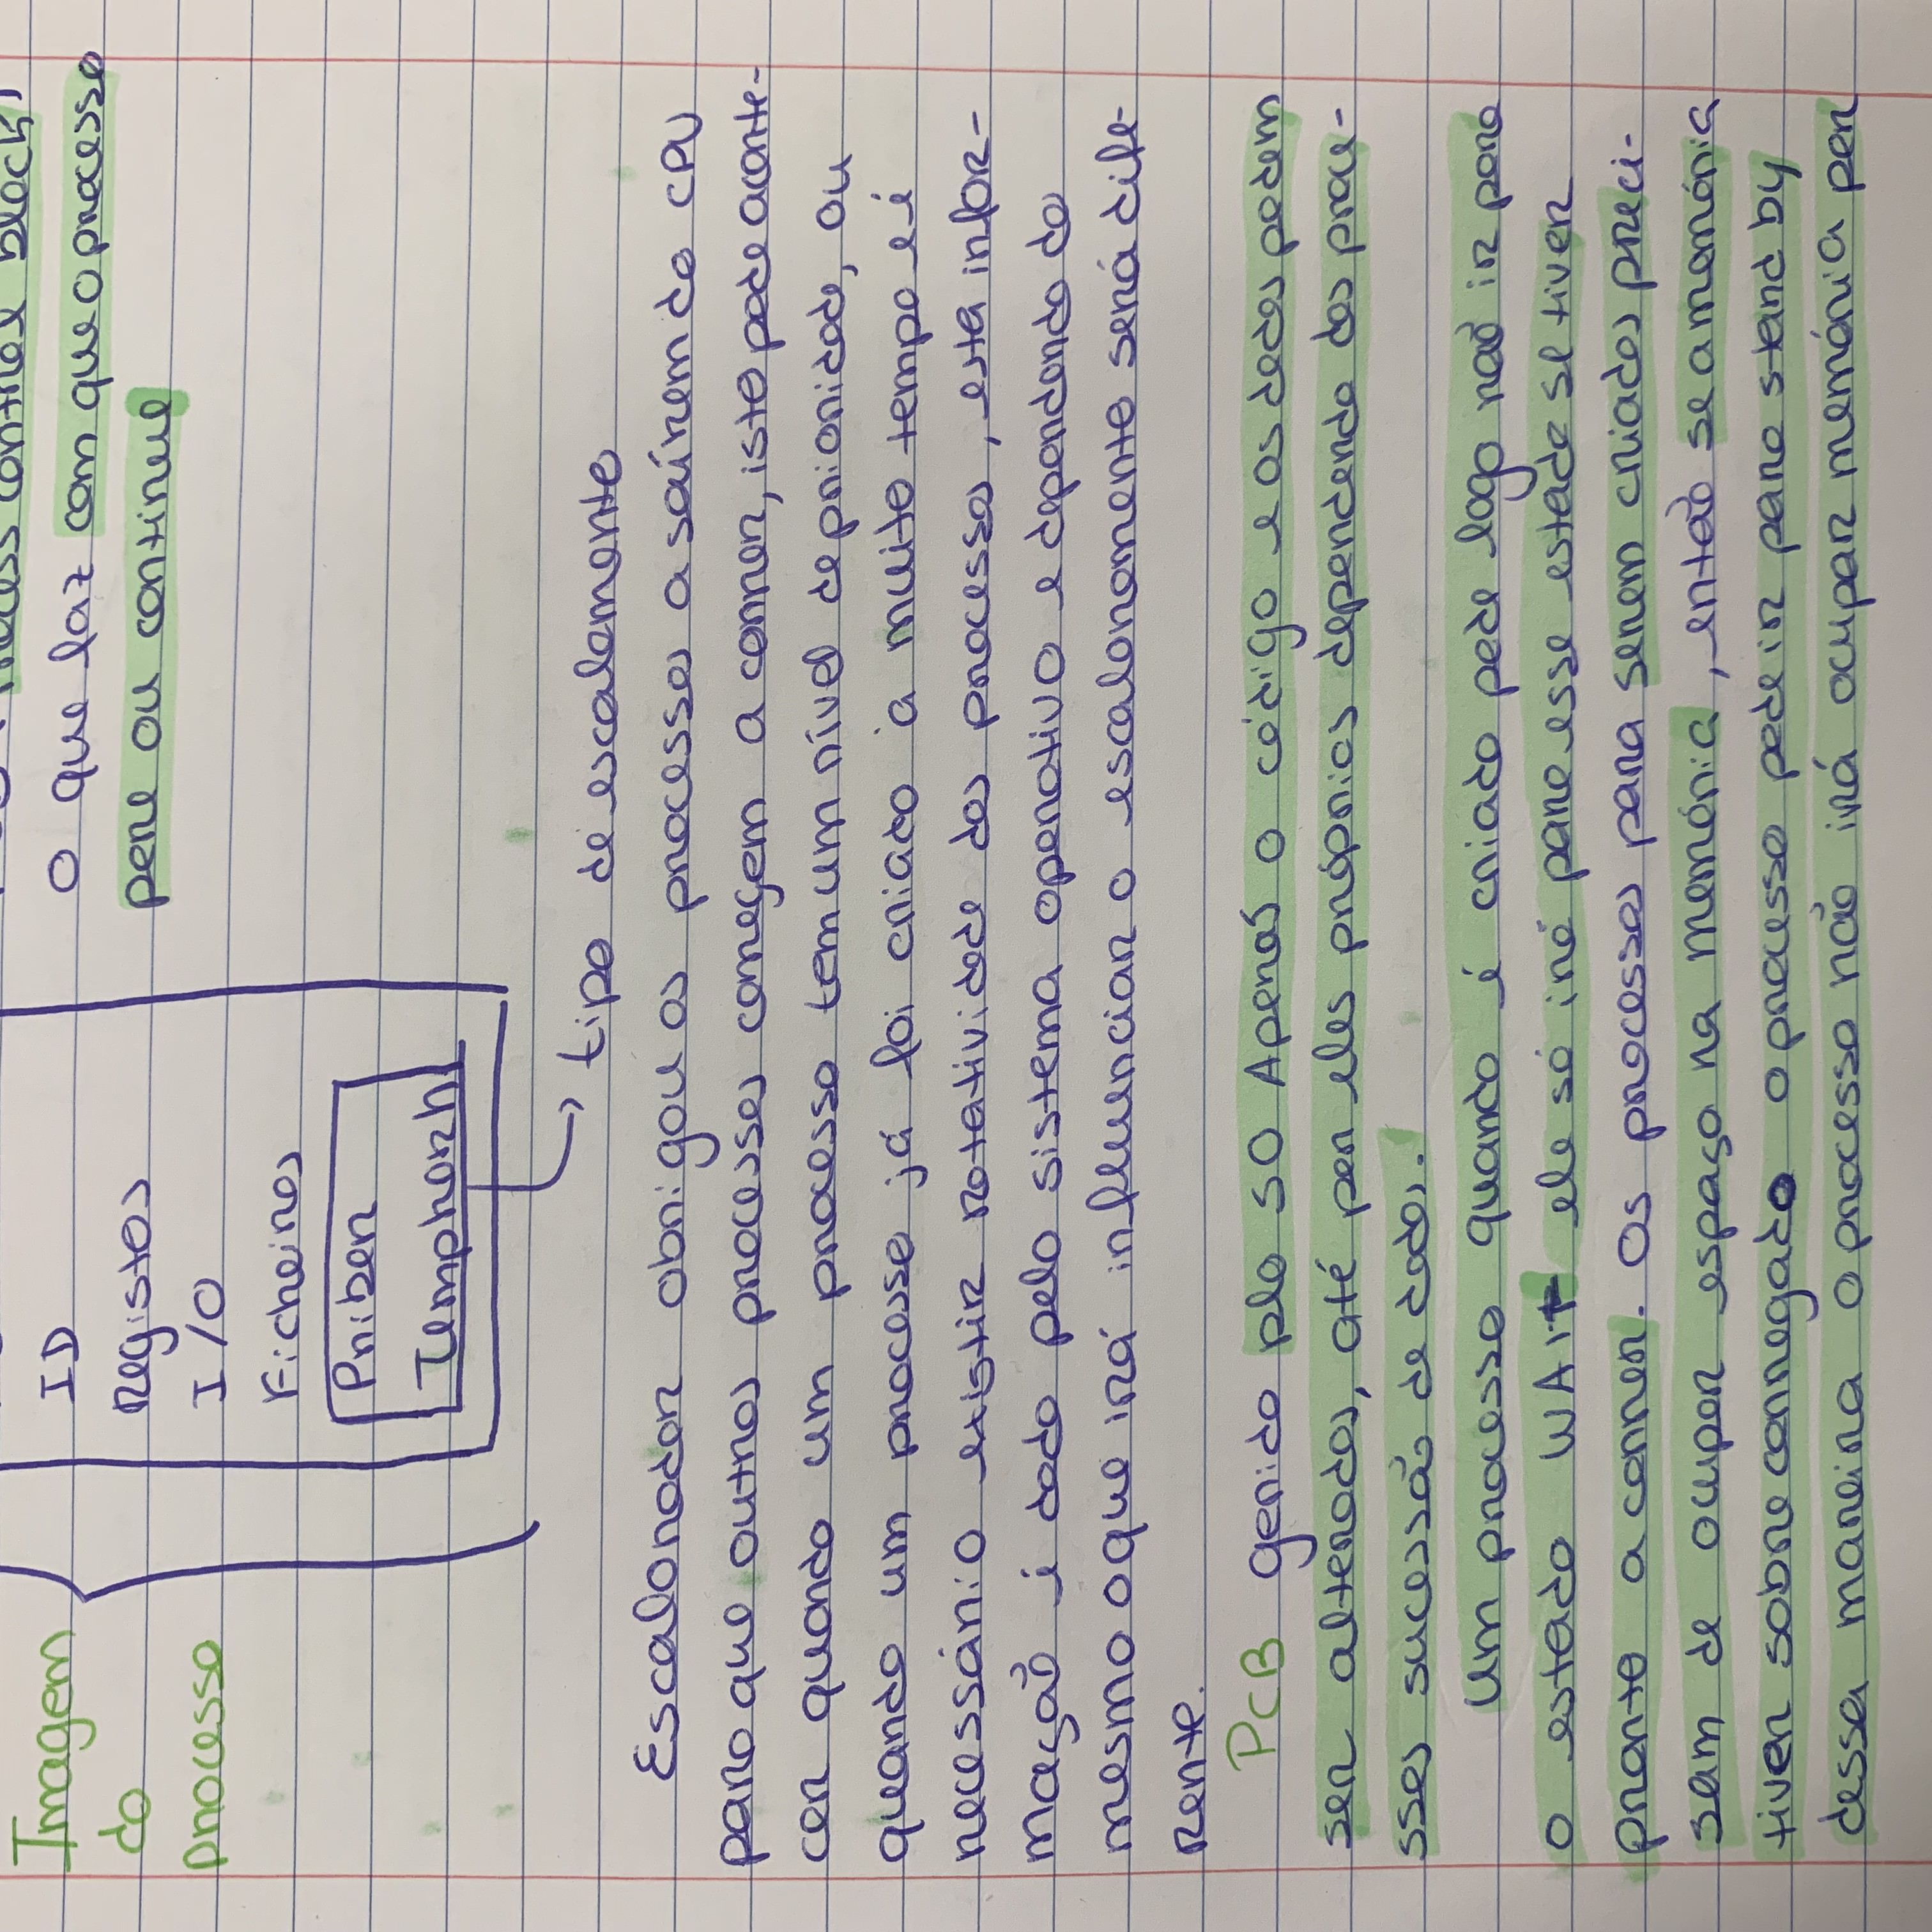 Process control block)
Imagem
do
processo
ID
Registos
I/O
Ficheiros
O que faz com que o processo
pere ou continue
tipo de escalemento
Escalonador obrigou os processos a saírem do CPU
para que outros processos começem a correr, isto pode aconte-
cer quando um processo tem um nível de prioridade, ou
quando um processo já foi criado à muito tempo e é
necessário existir rotatividade dos processos, esta infor-
mação é dado pelo sistema operativo e dependendo do
mesmo o que irá influenciar o escalonamento será dife-
rente.
PCB gerido plo SO Apenas o código e os dados podem
ser alterados, até por eles próprios dependendo dos proce-
sses sucessão de dados.
Um processo quando é criado pode logo não ir para
o estado WAIT ele só irá para esse estado se tiver
pronto a correr. Os processos para serem criados preci-
sam de ocupar espaço na memória, então se a memória
tiver sobrecarregado o processo pode ir para stand by
dessa maneira o processo não irá ocupar memória por